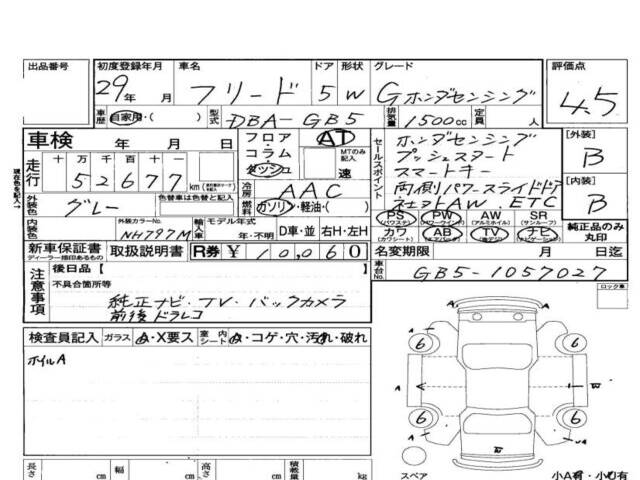 出品番号 初度登録年月 車名 ドア 形状 グレード 評価点
29年 月 フリード 5 W G ホンダセンシング 4.5
車歴 自家用・( ) 型式 DBA-GB5 排気量 1500cc 定員 人
車検 年 月 日 フロア・コラム・ダッシュ AT MTのみ記入 速
現在色を記入→
走行 十 万 千 百 十
5 2 6 7 7 km
冷房 AAC
燃料 ガソリン・軽油・( )
セールスポイント
ホンダセンシング
プッシュスタート
スマートキー
両側パワースライドドア
純正AW. ETC
[外装] B
[内装] B
外装色 グレー 色替車は色替と記入
内装色 外装カラーNo. NH797M 輸入車 モデル年式 年・不明 D車・並 右H・左H
PS (パワステ) PW (パワーウインドウ) AW (アルミホイル) SR (サンルーフ)
カワ (カワシート) AB (エアバック) TV (テレビ) ナビ (ナビゲーション)
純正品のみ丸印
新車保証書 ディーラー捺印あるもの 取扱説明書 R券 ¥10,060
名変期限 月 日迄
車台No. GB5-1057027
注意事項
後日品 [ ]
不具合箇所等
純正ナビ・TV・バックカメラ
前後ドラレコ
ロック車
検査員記入 ガラス A・X要ス 室内シート A・コゲ・穴・汚れ・破れ
ホイルA
6 6
A A
6 6
A
スペア 小A有・小U有
長さ cm 幅 cm 高さ cm 積載量 kg